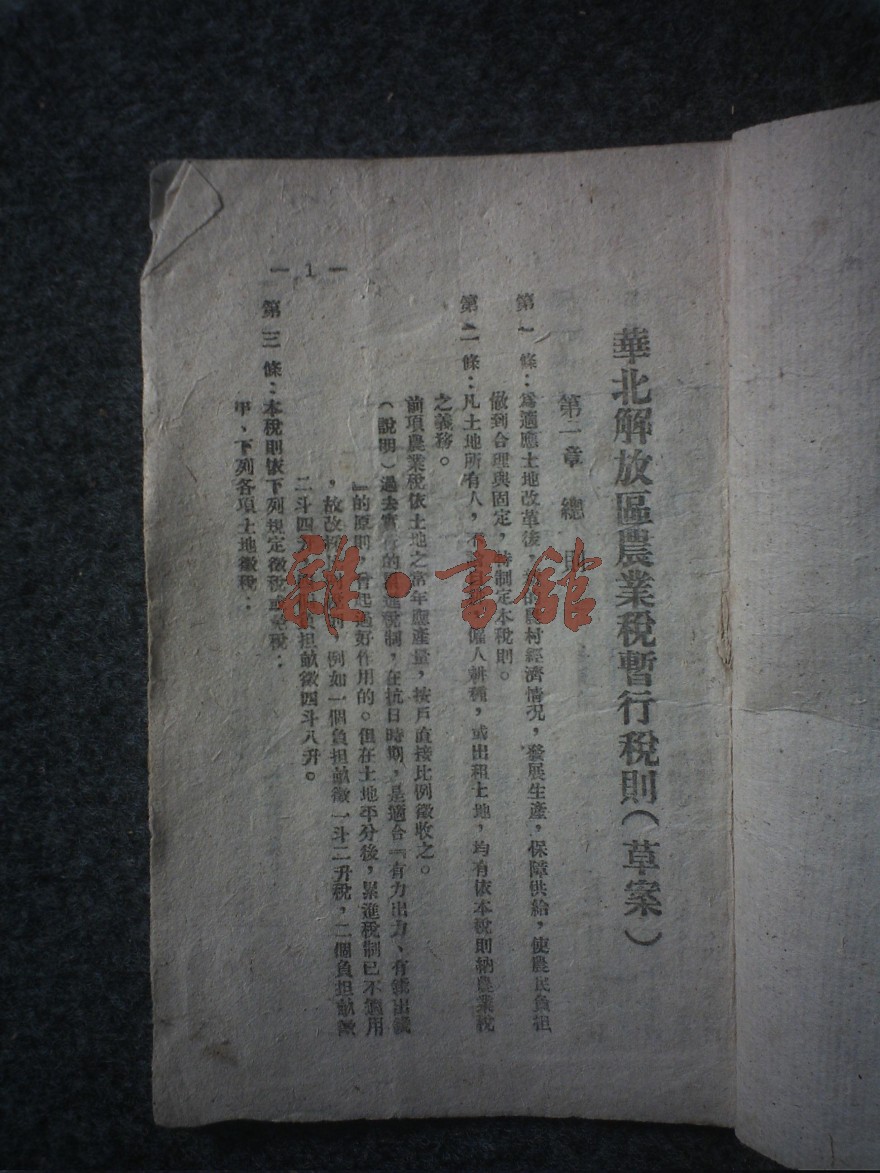 華北解放區農業稅暫行稅則（草案）
第一章 總則
第一條：為適應土地改革後，農村經濟情況，發展生產，保障供給，使農民負担
做到合理與固定，特制定本稅則。
第二條：凡土地所有人，不僱人耕種，或出租土地，均有依本稅則納農業稅
之義務。
前項農業稅依土地之常年應產量，按戶直接比例徵收之。
（說明）過去實行的累進稅制，在抗日時期，是適合『有力出力、有錢出錢
』的原則，曾起過好作用的。但在土地平分後，累進稅制已不適用
，故改例如一個負担畝徵一斗二升稅，二個負担畝徵
二斗四升担畝徵四斗八升。
第三條：本稅則依下列規定徵稅或免稅：
甲、下列各項土地徵稅：
— 1 —
雜·書館